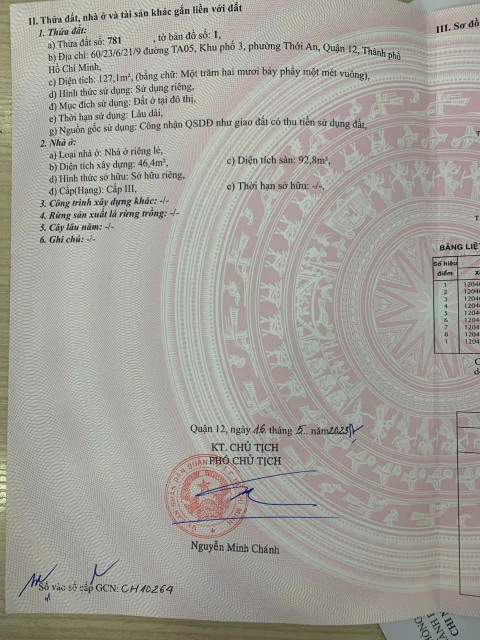 II. Thửa đất, nhà ở và tài sản khác gắn liền với đất
1. Thửa đất:
a) Thửa đất số: 781 , tờ bản đồ số: 1,
b) Địa chỉ: 60/23/6/21/9 đường TA05, Khu phố 3, phường Thới An, Quận 12, Thành phố
Hồ Chí Minh,
c) Diện tích: 127,1m², (bằng chữ: Một trăm hai mươi bảy phẩy một mét vuông),
d) Hình thức sử dụng: Sử dụng riêng,
đ) Mục đích sử dụng: Đất ở tại đô thị,
e) Thời hạn sử dụng: Lâu dài,
g) Nguồn gốc sử dụng: Công nhận QSDĐ như giao đất có thu tiền sử dụng đất,
2. Nhà ở:
a) Loại nhà ở: Nhà ở riêng lẻ,
b) Diện tích xây dựng: 46,4m², c) Diện tích sàn: 92,8m²,
d) Hình thức sở hữu: Sở hữu riêng,
đ) Cấp(Hạng): Cấp III, e) Thời hạn sở hữu: -/-,
3. Công trình xây dựng khác: -/-
4. Rừng sản xuất là rừng trồng: -/-
5. Cây lâu năm: -/-
6. Ghi chú: -/-
Quận 12, ngày 16 tháng 5.. năm 2023
KT. CHỦ TỊCH
PHÓ CHỦ TỊCH
Nguyễn Minh Chánh
Số vào sổ cấp GCN: CH10264
III. Sơ đồ
BẢNG LIỆT
Số hiệu
điểm X
1 1204
2 1204
3 1204
4 1204
5 1204
6 1204
7 1204
8 1204
1 1204